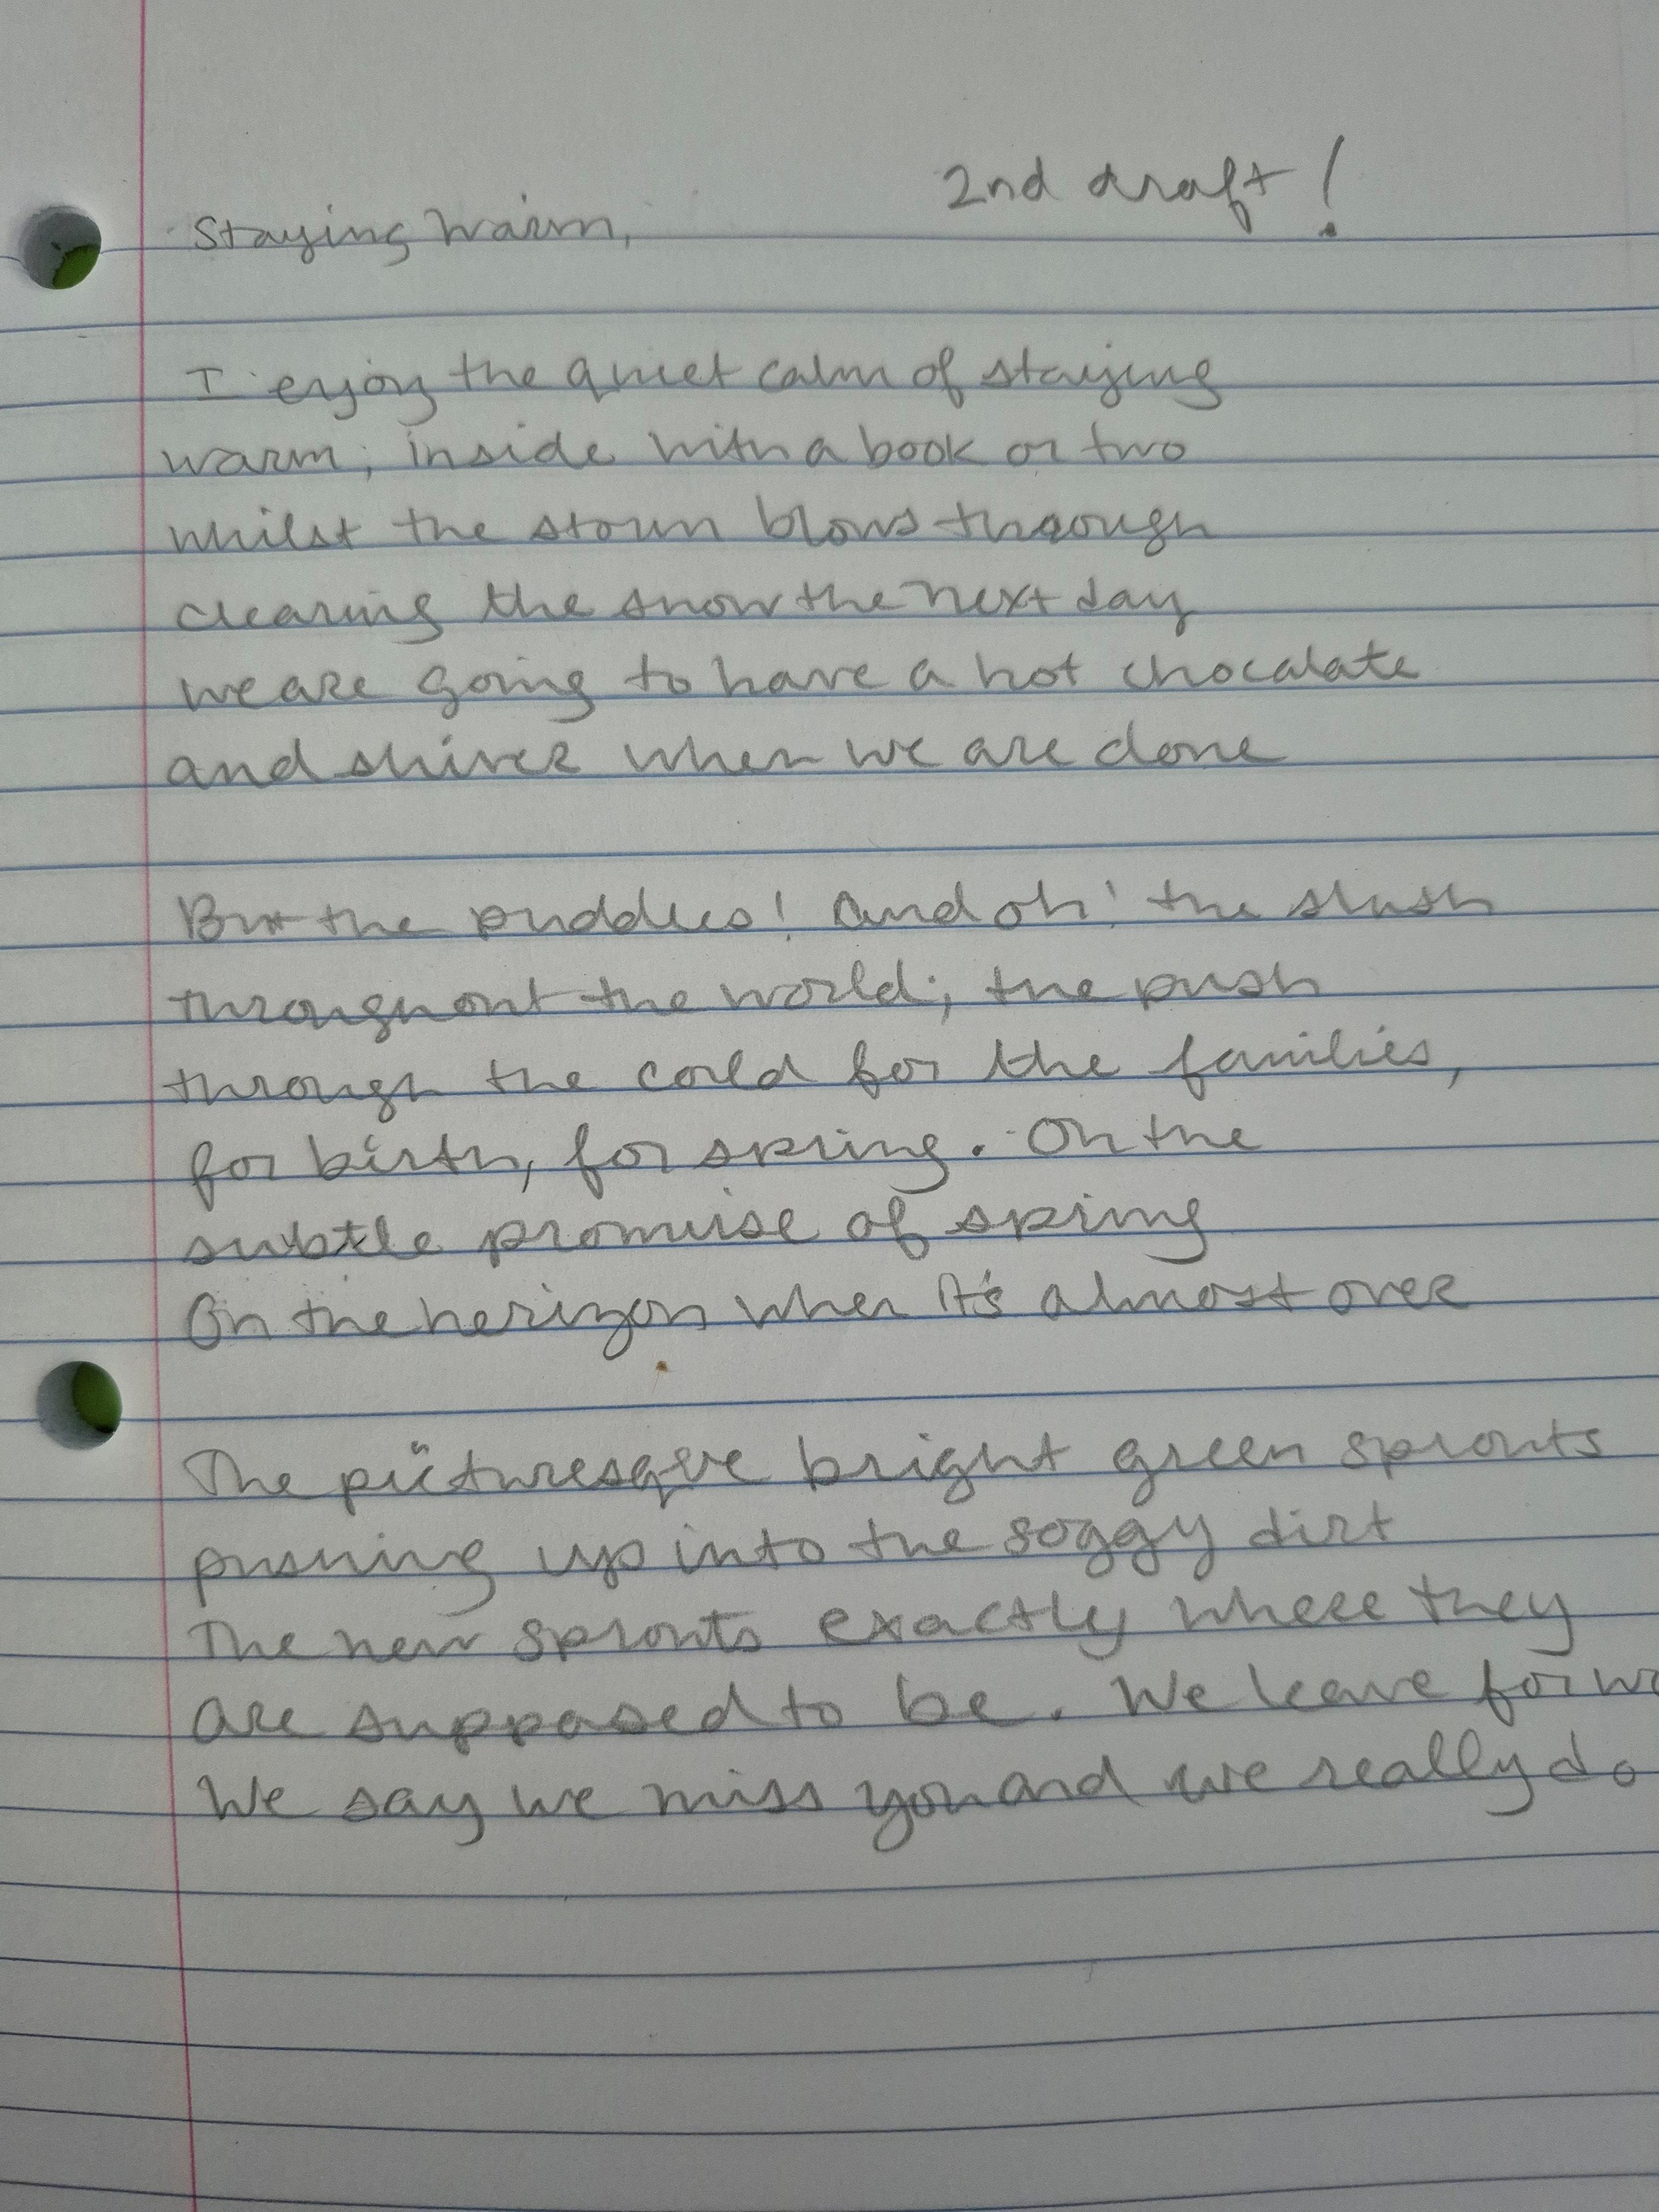 2nd draft!
Staying warm,
I enjoy the quiet calm of staying
warm, inside with a book or two
whilst the storm blows through
clearing the snow the next day
we are going to have a hot chocalate
and shiver when we are done
But the puddles! And oh! the slush
throughout the world, the push
through the cold for the families,
for birth, for spring. On the
subtle promise of spring
On the herizon when it's almost over
The picturesque bright green sprouts
pushing up into the soggy dirt
The new sprouts exactly where they
are supposed to be. We leave for
We say we miss you and we really do